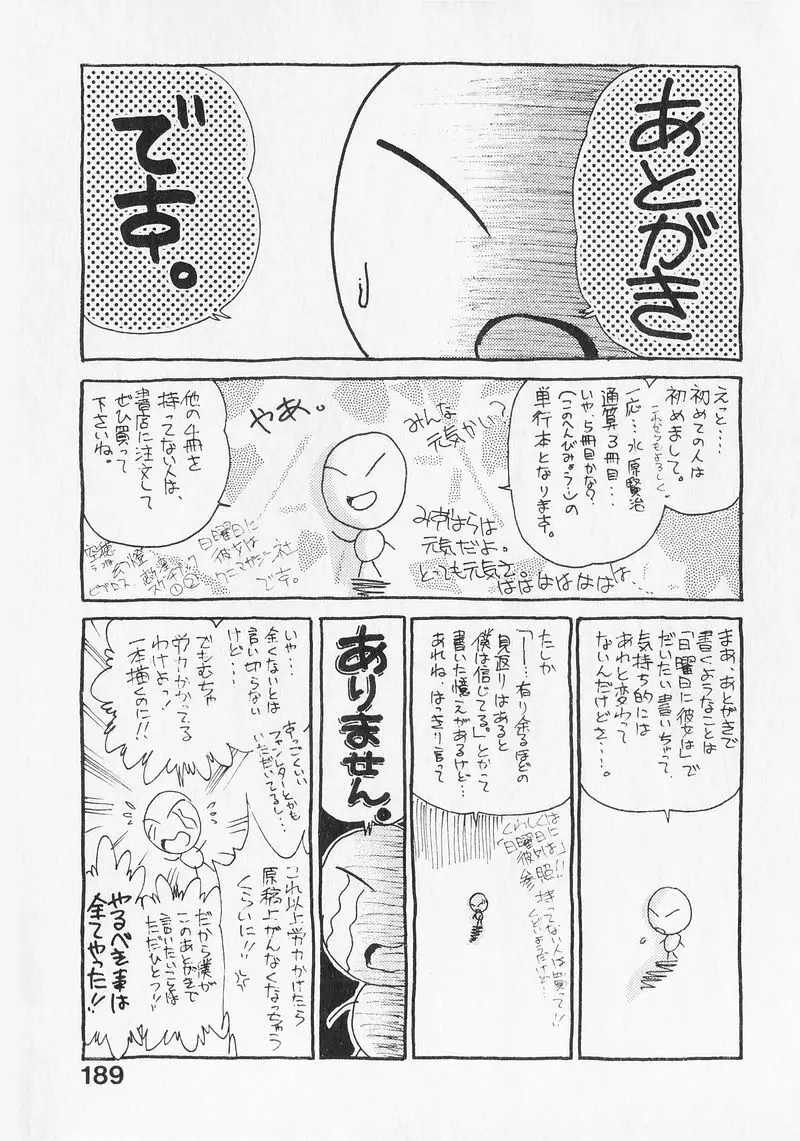 あとがき
です。
えっと…
初めての人は
初めまして。
これからもよろしく。
一応…水原賢治
通算3冊目…
いや、5冊目かな?
(このへんびみょう…)の
単行本となります。
みんな
元気かい?
やあ。
みずはらは
元気だよ。
とっても元気さ。
ははははははは…
他の4冊を
持ってない人は、
書店に注文して
ぜひ買って
下さいね。
日曜日に
彼女は
ワニマガジン社
です。
①②
まあ、あとがきで
書くようなことは
「日曜日に彼女は」で
だいたい書いちゃって、
気持ち的には
あれと変わって
ないんだけどさ…。
たしか
「――!…有り余るほどの
見返りはあると
僕は信じてる。」とかって
書いた憶えがあるけど…
あれね、はっきり言って
くわしくは
「日曜日に
彼女は」
参照!!
持ってない人は買って!!
くどいようだけど…
ありません。
いや…
全くないとは
言い切らない
けど…
すっごくいい
ファンレターとかも
いただいてるし…
でもむちゃ
労力かかってる
わけよっ!
一本描くのに!!
これ以上労力かけたら
原稿上がんなくなっちゃう
くらいに!!
だから僕が
このあとがきで
言いたいことは
ただひとつ!!
やるべき事は
全てやった!!
189